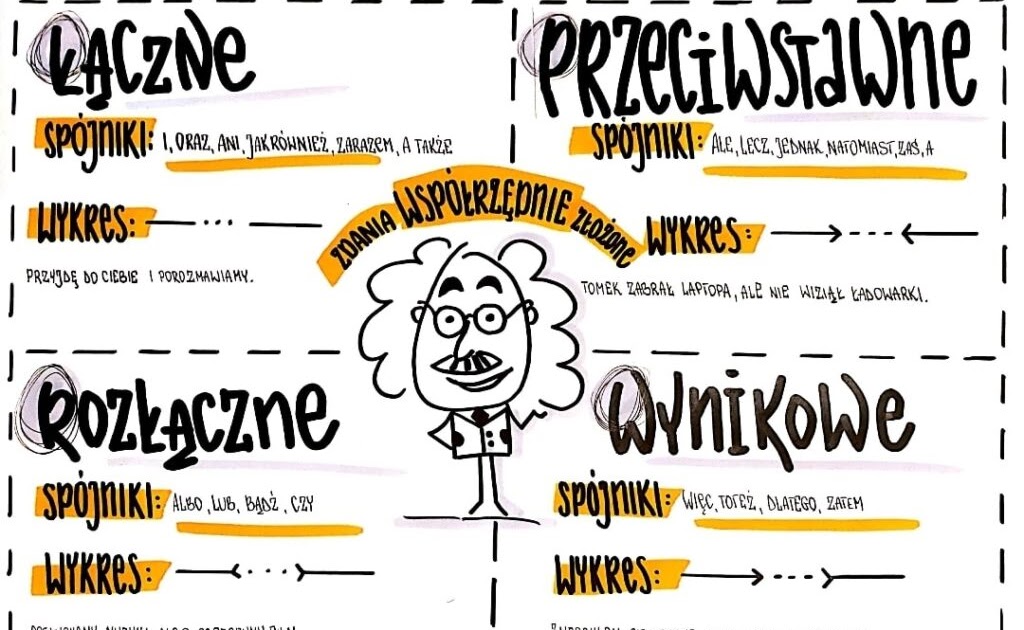 ŁĄCZNE
SPÓJNIKI: I, ORAZ, ANI, JAK RÓWNIEŻ, ZARAZEM, A TAKŻE
WYKRES:
PRZYJDĘ DO CIEBIE I POROZMAWIAMY.
PRZECIWSTAWNE
SPÓJNIKI: ALE, LECZ, JEDNAK, NATOMIAST, ZAŚ, A
WYKRES:
TOMEK ZABRAŁ LAPTOPA, ALE NIE WIZIĄŁ ŁADOWARKI.
ZDANIA WSPÓŁRZĘDNIE ZŁOŻONE
ROZŁĄCZNE
SPÓJNIKI: ALBO, LUB, BĄDŹ, CZY
WYKRES:
WYNIKOWE
SPÓJNIKI: WIĘC, TOTEŻ, DLATEGO, ZATEM
WYKRES: